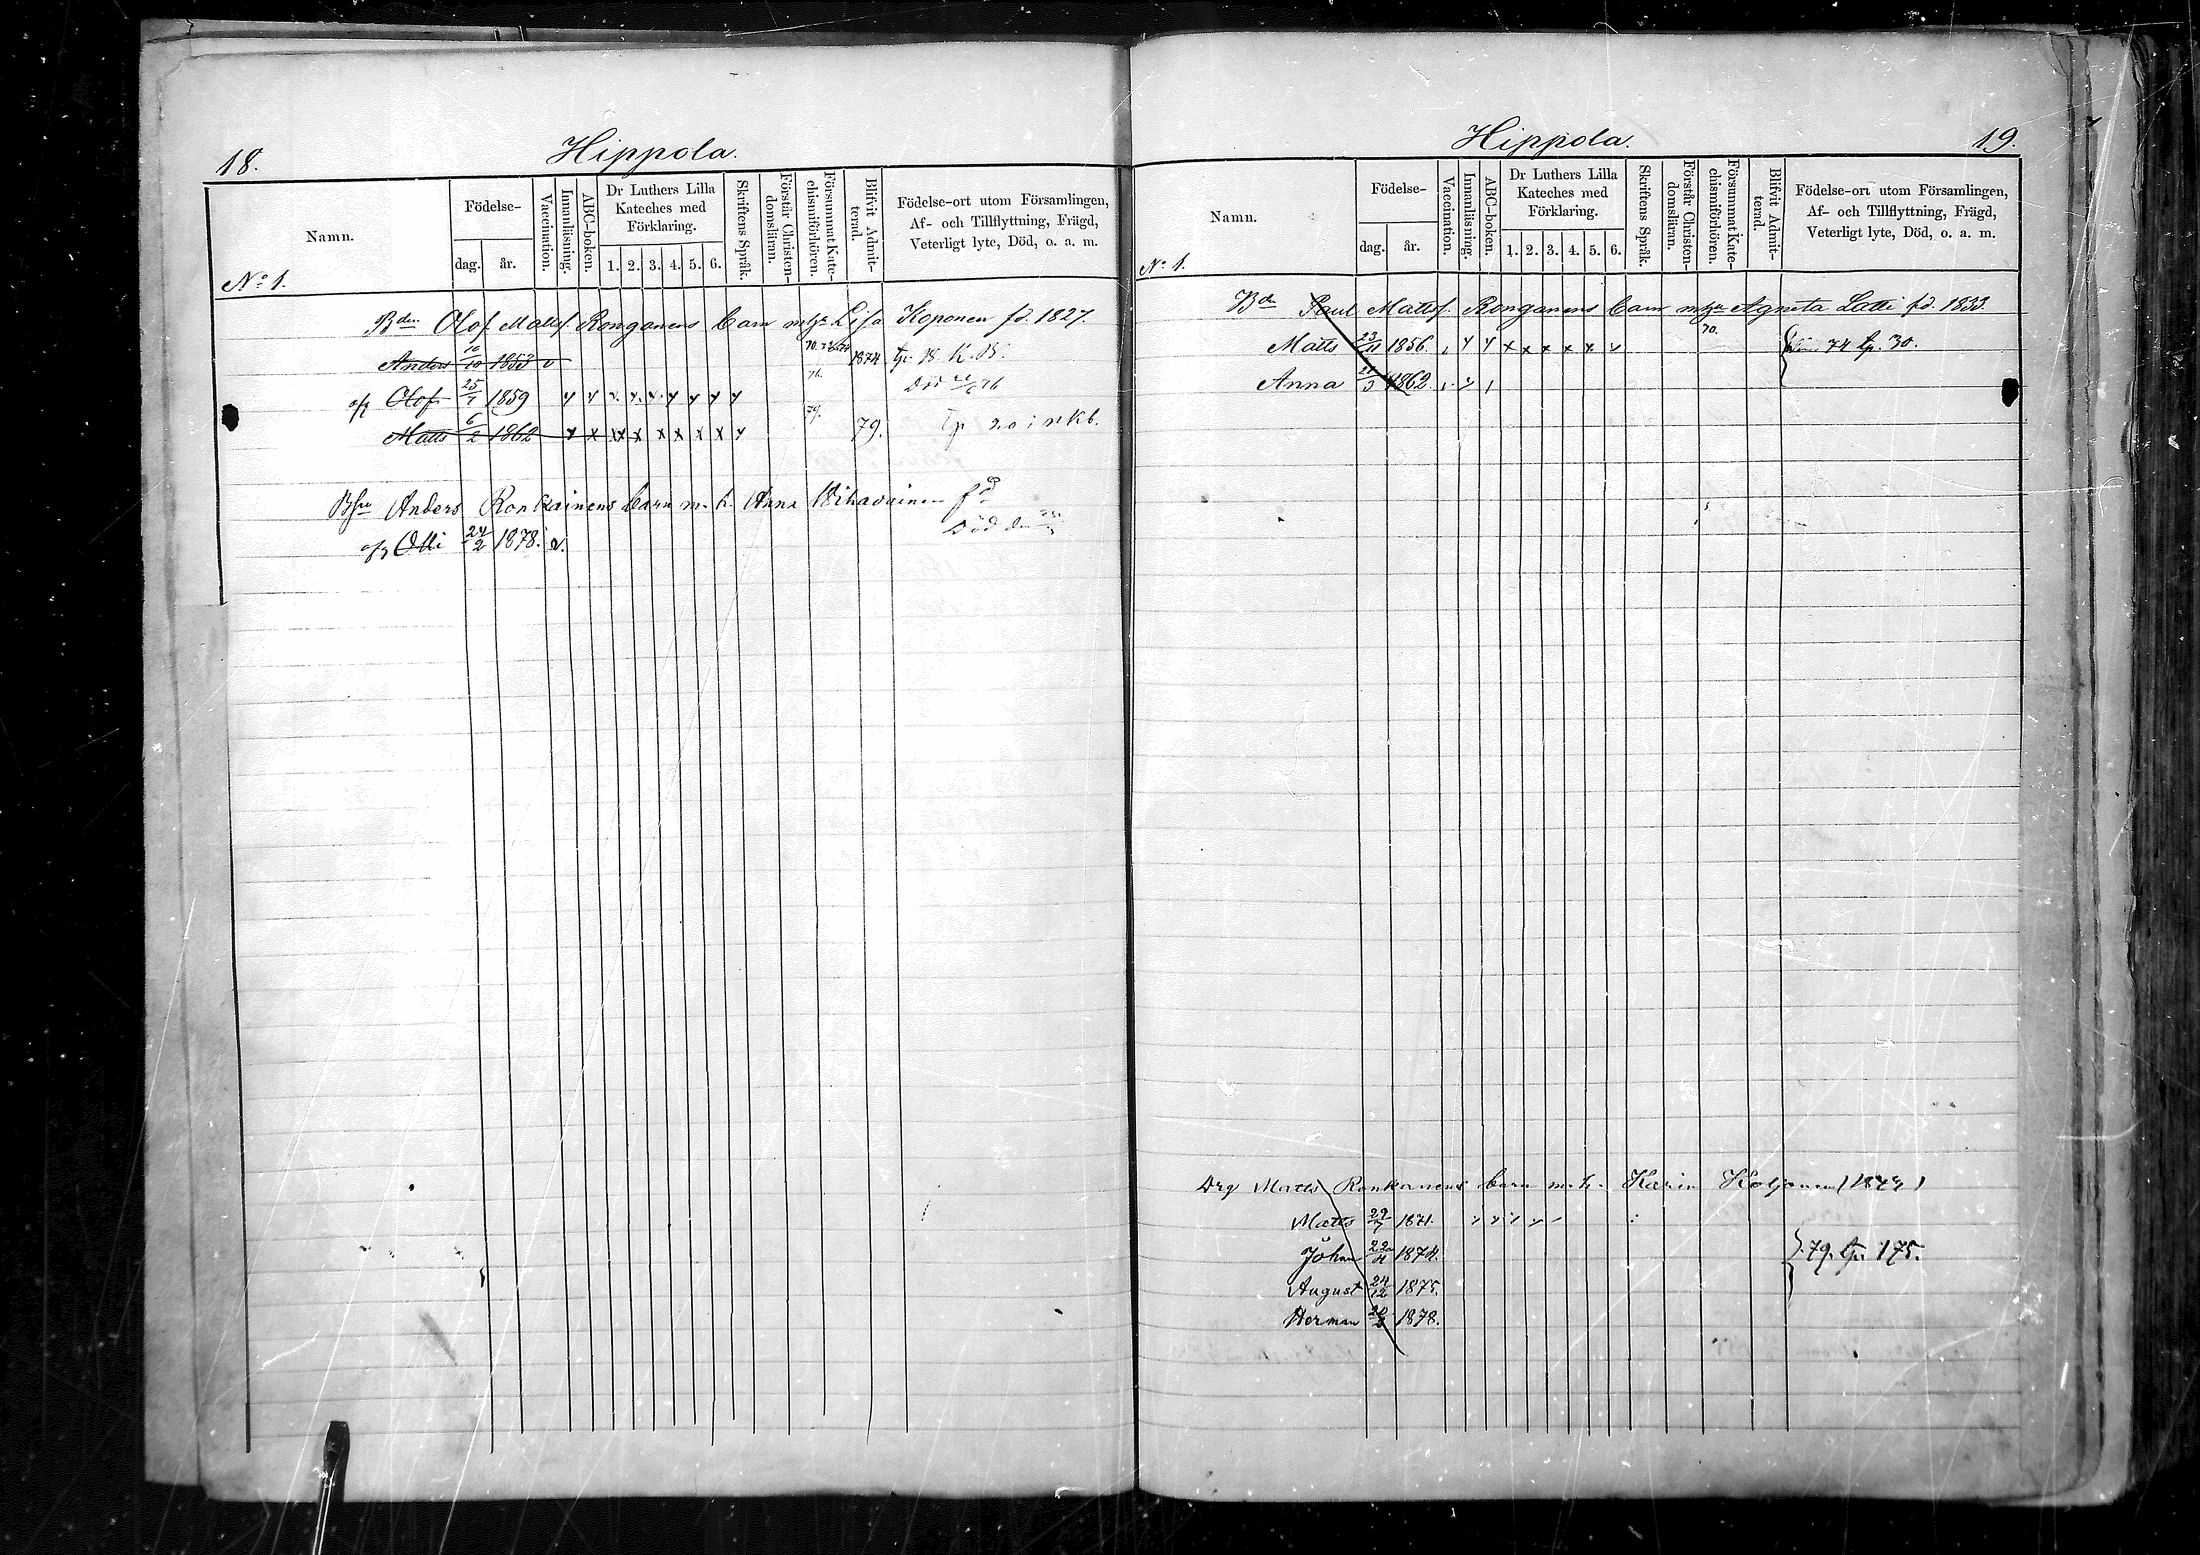 18.
Hippola.
Namn.
No 1.
Födelse-
dag. år.
Vaccination.
Innanläsning.
ABC-boken.
Dr Luthers Lilla
Kateches med
Förklaring.
1. 2. 3. 4. 5. 6.
Skriftens Språk.
Förstår Christen-
domsläran.
Försummat Kate-
chismiförhören.
Blifvit Admit-
terad.
Födelse-ort utom Församlingen,
Af- och Tillflyttning, Frägd,
Veterligt lyte, Död, o. a. m.
Bden Olof Mattsf. Ronganens barn m Lisa Koponen fd. 1827.
Anders 10/10 1853 v 1874 tp. 18 K.B.
76.
of Olof 25/7 1859 Död 76
Matts 6/2 1862 79. 79. tp 20 i nkb.
Anders Ronkainens barn m. h. Anna Vihavainen fd
of Olli 24/2 1878. v. Död den
Hippola.
19.
Namn.
No 1.
Födelse-
dag. år.
Vaccination.
Innanläsning.
ABC-boken.
Dr Luthers Lilla
Kateches med
Förklaring.
1. 2. 3. 4. 5. 6.
Skriftens Språk.
Förstår Christen-
domsläran.
Försummat Kate-
chismiförhören.
Blifvit Admit-
terad.
Födelse-ort utom Församlingen,
Af- och Tillflyttning, Frägd,
Veterligt lyte, Död, o. a. m.
Bdn Paul Mattsf. Ronganens barn m Agneta Latti fd. 1833.
Matts 23/11 1856. x x x x x 70. 74 tp. 30.
Anna 21/3 1862.
Drg Matts Ronkanens barn m. h. Karin Koljonen
Matts 29/7 1871.
Johan 22/11 1874. } 79. tp. 175.
August 24/12 1875.
Herman 1878.